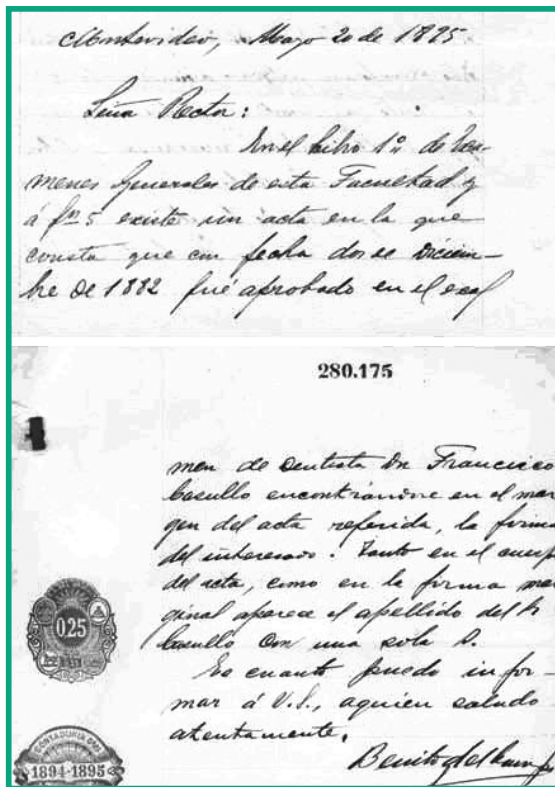 Montevideo, Mayo 20 de 1895.
Señor Rector:
En el Libro 1º de Exa-
menes Generales de esta Facultad y
á fs 5 existe un acta en la que
consta que con fecha dos de Diciem-
bre de 1882 fué aprobado en el exa
280.175
men de Dentista Dn Francisco
Casullo encontrándose en el mar
gen del acta referida, la firma
del interesado. Tanto en el cuerp
del acta, como en la firma mar
ginal aparece el apellido del Sr
Casullo con una sola s.
Es cuanto puedo infor-
mar á V.S., a quien saludo
atentamente.
Benito del
0.25
CONTADURIA GRAL
1894-1895